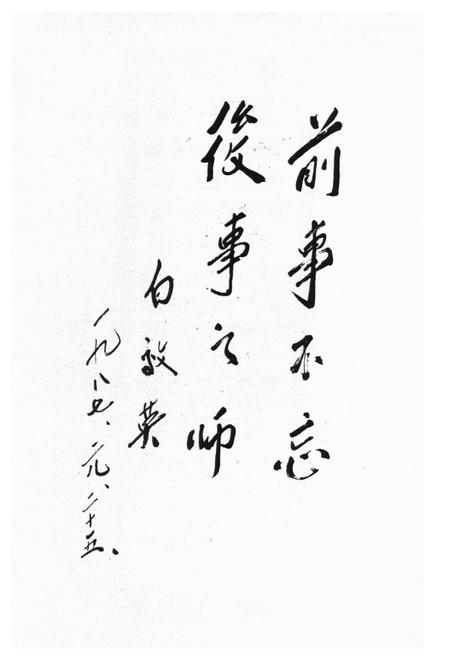 前事不忘
後事之师
白 英
一九八七、元、二十五、